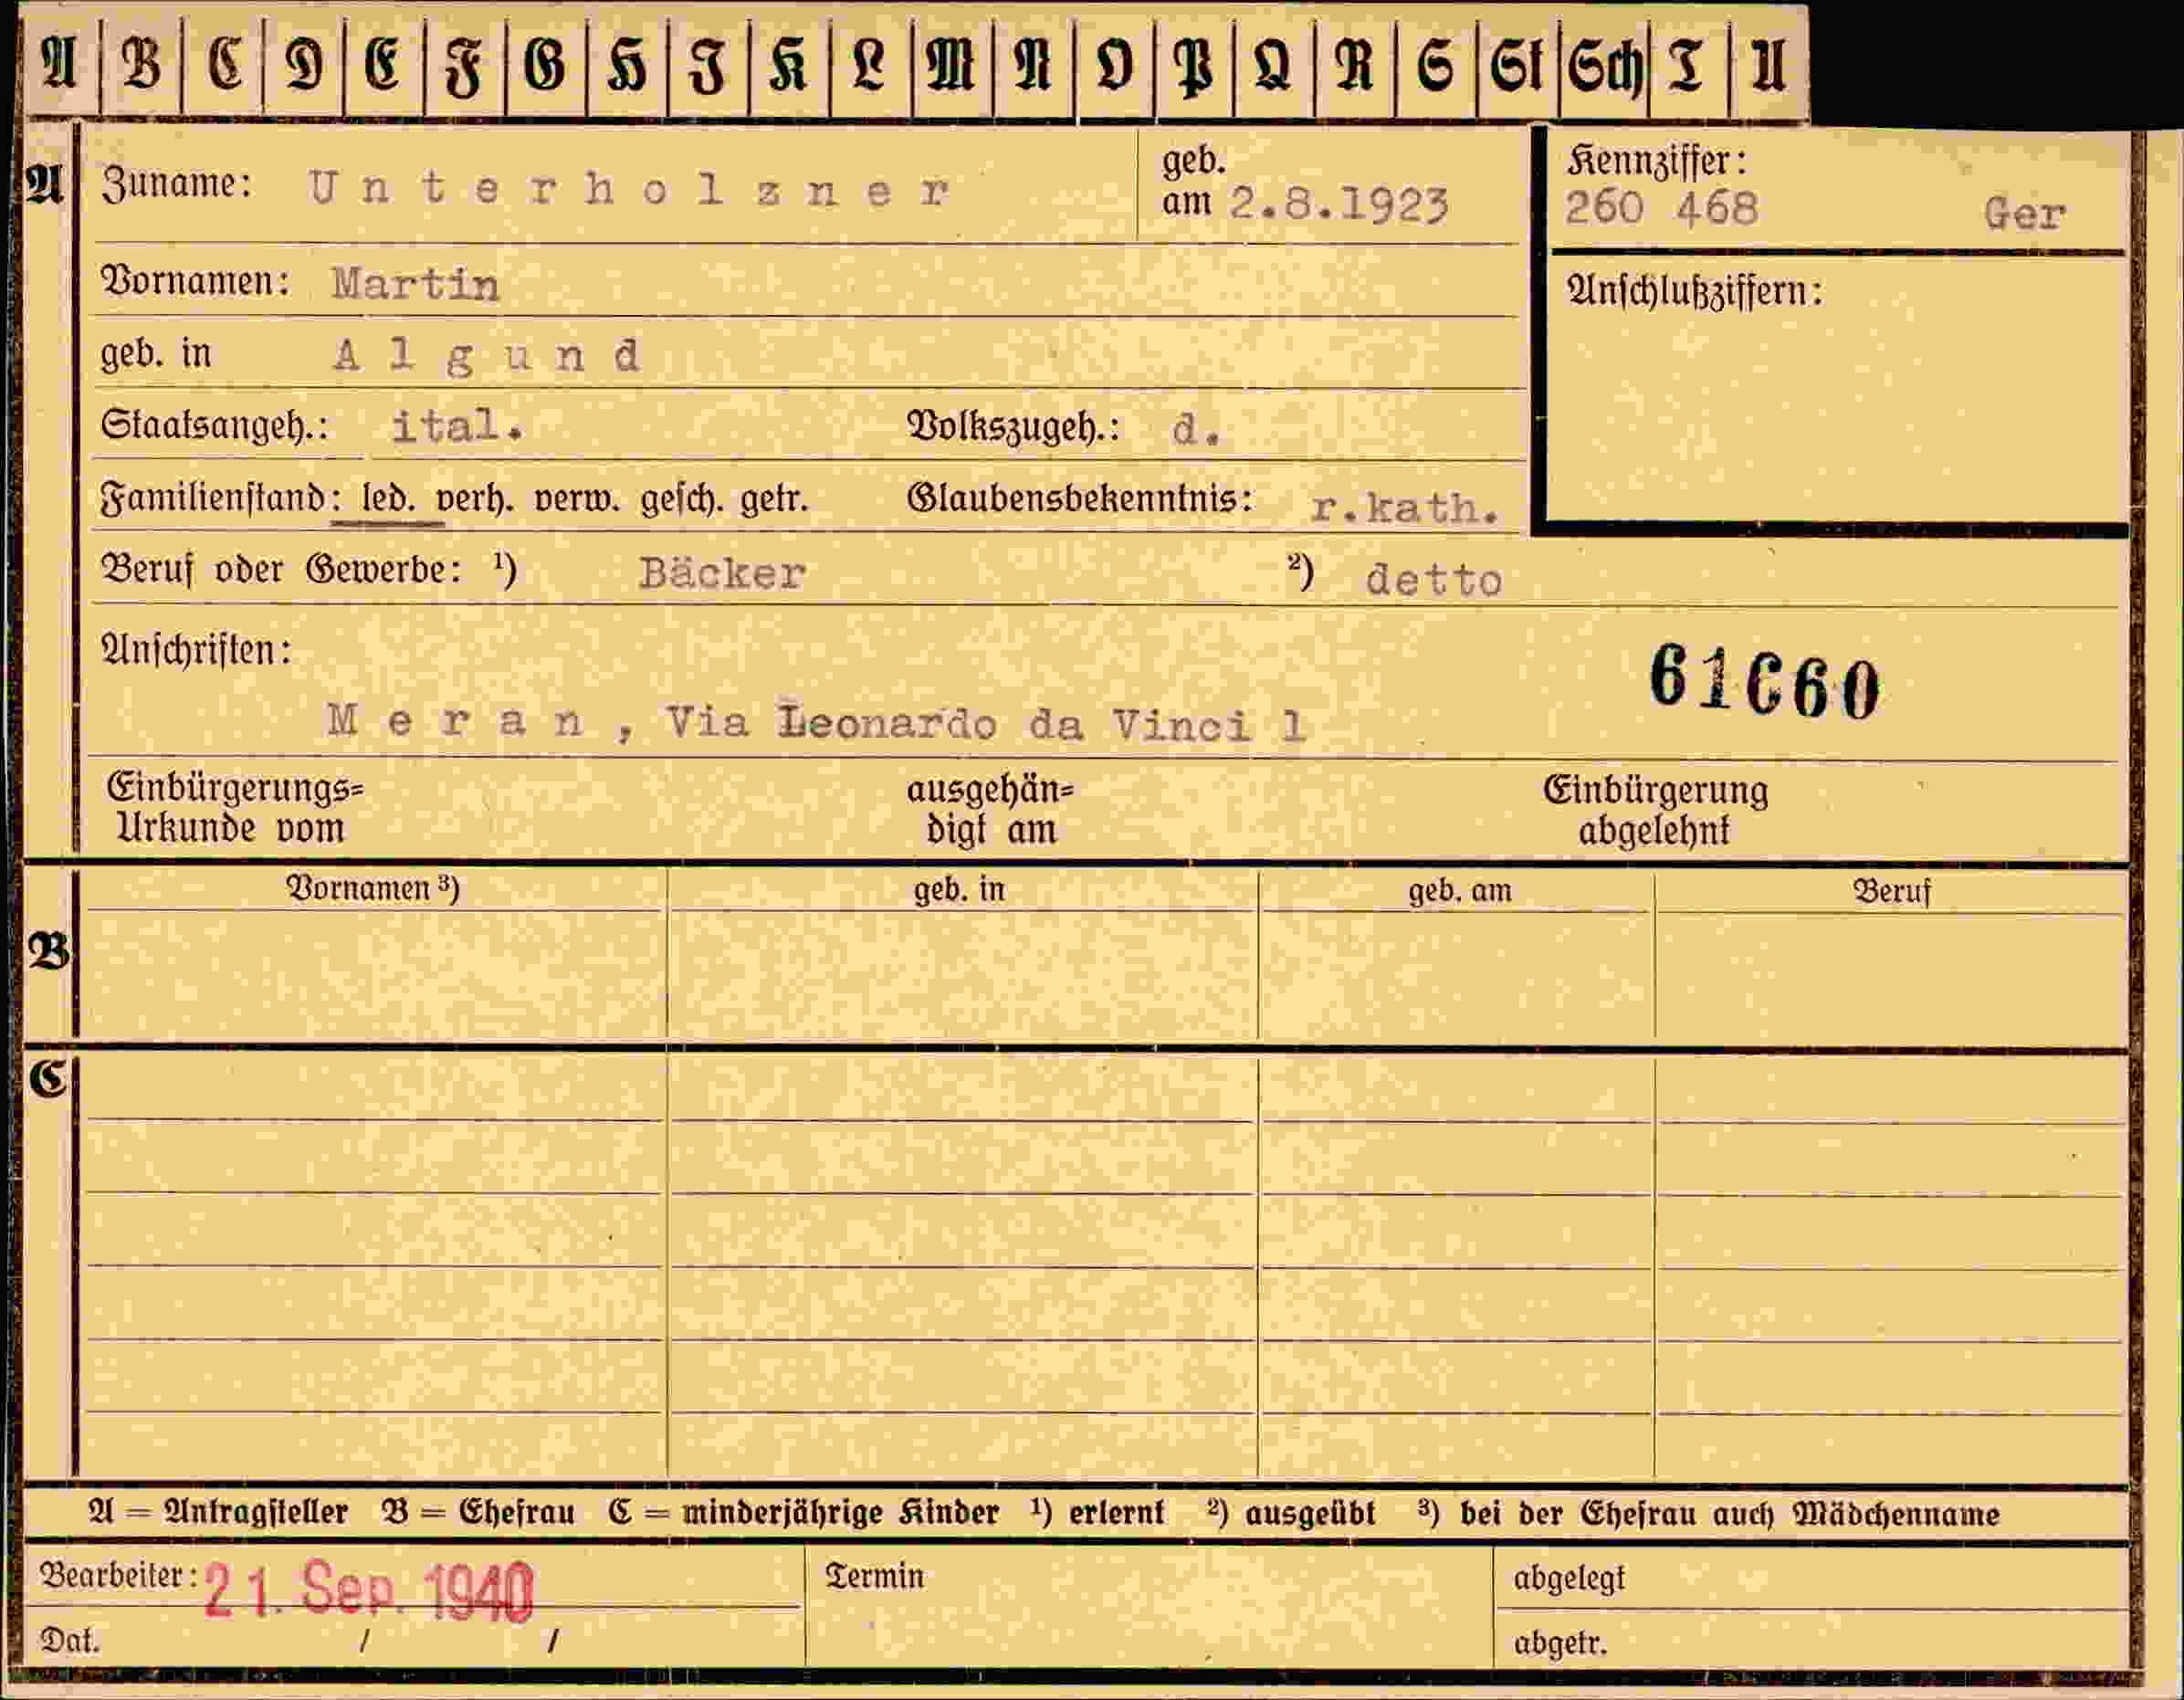 A B C D E F G H I K L M N O P Q R S St Sch T U
A Zuname: Unterholzner geb. am 2.8.1923 Kennziffer: 260 468 Ger
Vornamen: Martin Anschlußziffern:
geb. in Algund
Staatsangeh.: ital. Volkszugeh.: d.
Familienstand: led. verh. verw. gesch. getr. Glaubensbekenntnis: r.kath.
Beruf oder Gewerbe: ¹) Bäcker ²) detto
Anschriften: 61660
Meran, Via Leonardo da Vinci 1
Einbürgerungs= ausgehän= Einbürgerung
Urkunde vom digt am abgelehnt
Vornamen ³) geb. in geb. am Beruf
B
C
A = Antragsteller B = Ehefrau C = minderjährige Kinder ¹) erlernt ²) ausgeübt ³) bei der Ehefrau auch Mädchenname
Bearbeiter: 21. Sep. 1940 Termin abgelegt
Dat. / / abgetr.